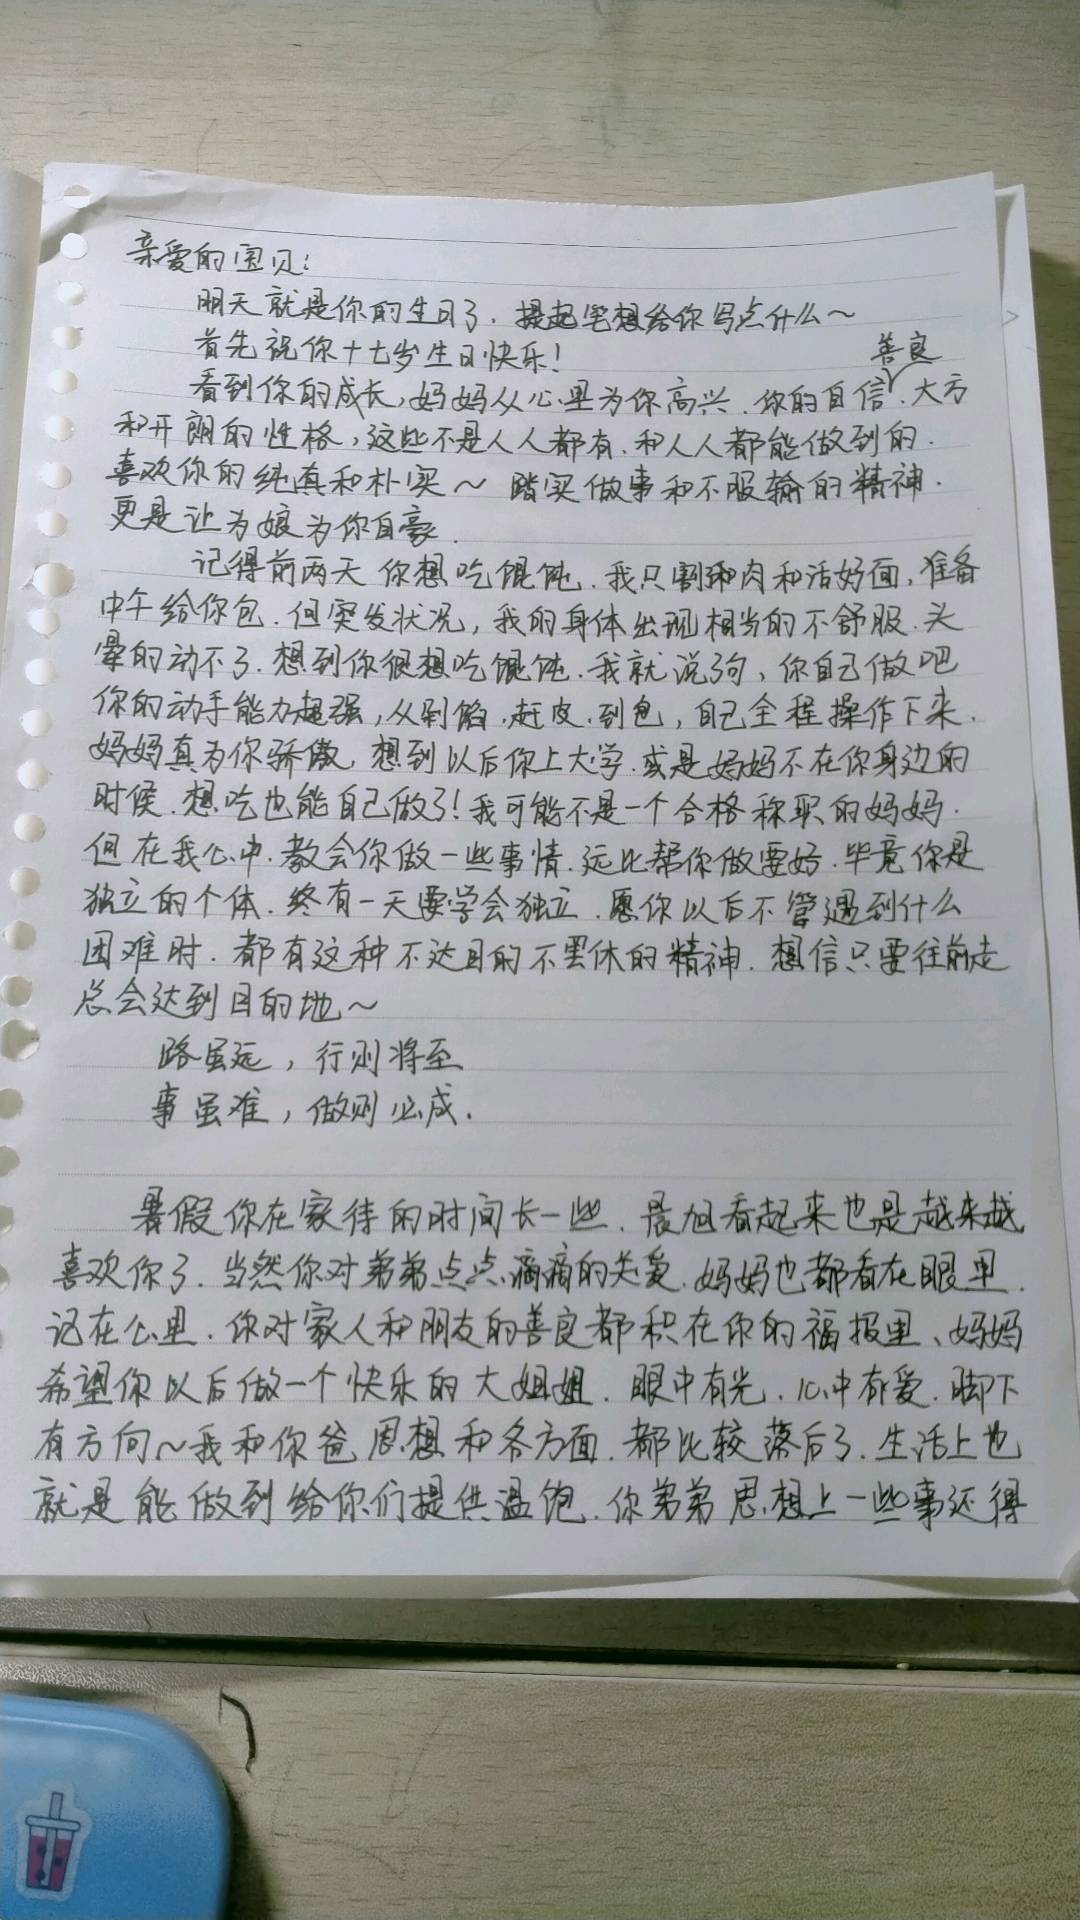 亲爱的宝贝:
明天就是你的生日了.提起笔想给你写点什么~
首先祝你十七岁生日快乐!
善良
看到你的成长,妈妈从心里为你高兴.你的自信.大方
和开朗的性格,这些不是人人都有.和人人都能做到的.
喜欢你的纯真和朴实~ 踏实做事和不服输的精神.
更是让为娘为你自豪.
记得前两天你想吃馄饨.我只割和肉和活好面,准备
中午给你包.但突发状况,我的身体出现相当的不舒服.头
晕的动不了.想到你很想吃馄饨.我就说了句,你自己做吧
你的动手能力超强,从剁馅.赶皮.到包,自己全程操作下来.
妈妈真为你骄傲,想到以后你上大学.或是妈妈不在你身边的
时候.想吃也能自己做了!我可能不是一个合格称职的妈妈.
但在我心中.教会你做一些事情.远比帮你做要好.毕竟你是
独立的个体.终有一天要学会独立.愿你以后不管遇到什么
困难时.都有这种不达目的不罢休的精神.想信只要往前走
总会达到目的地~
路虽远,行则将至
事虽难,做则必成.
暑假你在家待的时间长一些.晨旭看起来也是越来越
喜欢你了.当然你对弟弟点点滴滴的关爱.妈妈也都看在眼里.
记在心里.你对家人和朋友的善良都积在你的福报里、妈妈
希望你以后做一个快乐的大姐姐.眼中有光.心中有爱.脚下
有方向~我和你爸思想和各方面.都比较落后了.生活上也
就是能做到给你们提供温饱.你弟弟思想上一些事还得